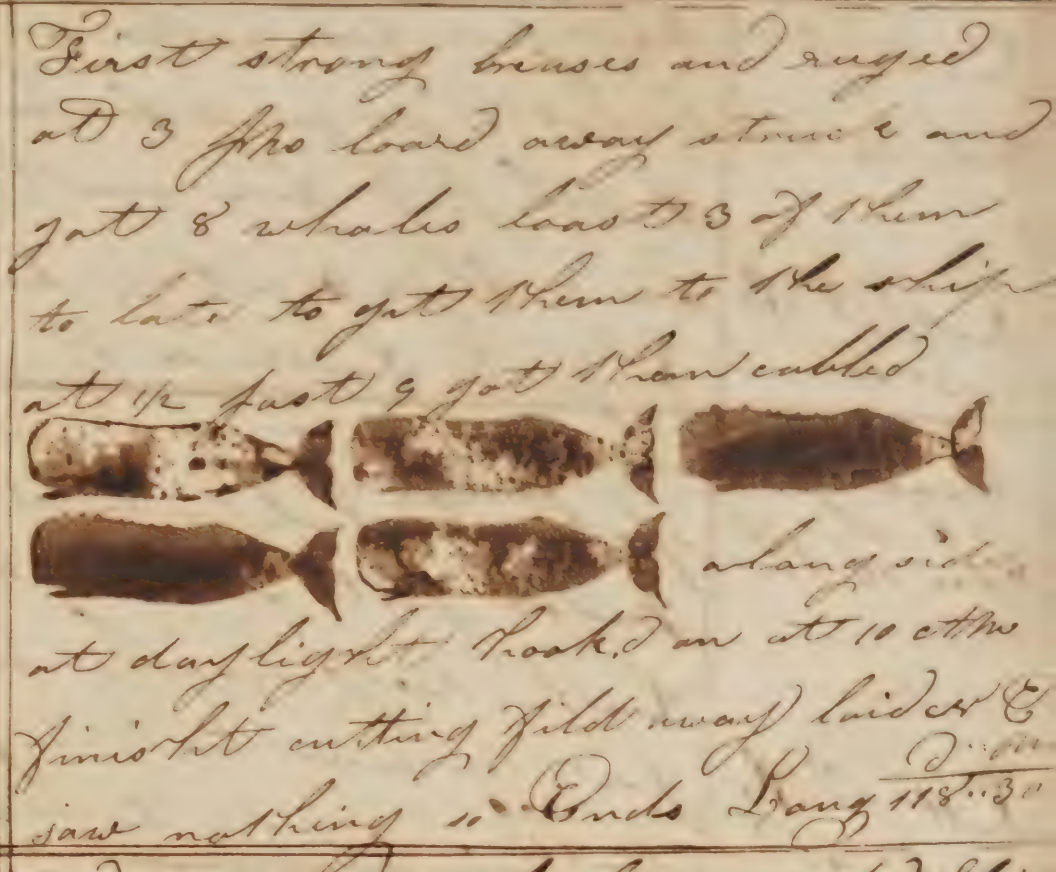 First strong breuses and ruged
at 3 pm loard away struck and
got 8 whales loost 3 of them
to late to get them to the ship
at 1/2 past 9 got them cabled
along side
at daylight hook,d on at 10 am
finisht cutting fild away
saw nothing so Ends Long 118..30